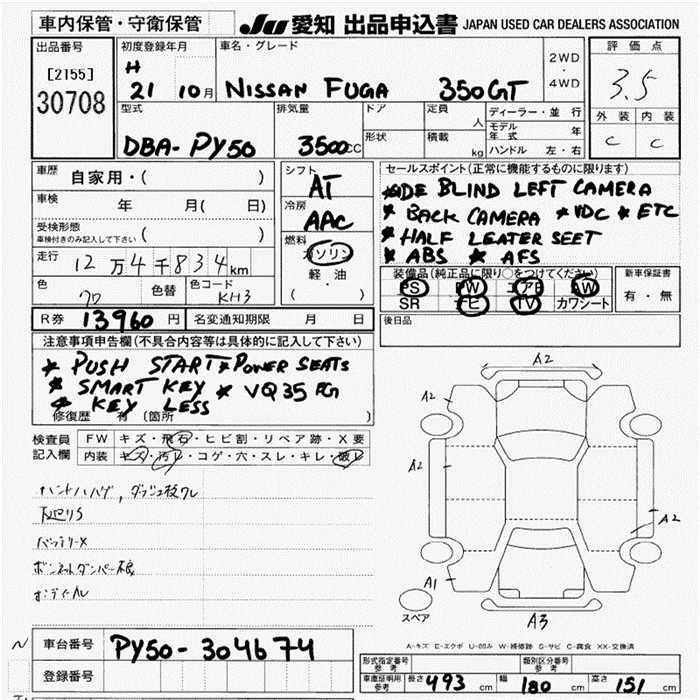 車内保管・守衛保管
JU 愛知 出品申込書 JAPAN USED CAR DEALERS ASSOCIATION
出品番号
[2155]
30708
初度登録年月
H
21 10月
車名・グレード
NISSAN FUGA 350GT
2WD
・
4WD
評価点
3.5
外装 内装
C C
型式
DBA-PY50
排気量
3500CC
ドア
形状
定員 人
積載 kg
ディーラー・並行
モデル年式 年
ハンドル 左・右
車歴 自家用・( )
車検 年 月( 日)
受検形態
車検付きのみ記入して下さい ( )
走行 12万4千834km
色 クロ 色替 色コード KH3
R券 13960円 名変通知期限 月 日
シフト
AT
冷房
AAC
燃料
ガソリン
軽・油
( )
セールスポイント(正常に機能するものに限ります)
BLIND LEFT CAMERA
* BACK CAMERA * VDC * ETC
* HALF LEATER SEET
* ABS * AFS
装備品(純正品に限り○をつけてください)
PS PW エアB AW
SR ナビ TV カワシート
新車保証書
有・無
後日品
注意事項申告欄(不具合内容等は具体的に記入して下さい)
* PUSH START * POWER SEATS
* SMART KEY * VQ35
* KEY LESS
修復歴 有 (箇所 )
検査員記入欄
FW キズ・飛石・ヒビ割・リペア跡・X要
内装 キズ・汚レ・コゲ・穴・スレ・キレ・破レ
バッテリーX
ボンネットダンパー不良
A2
A2
A2
A2
A2
A1
A3
スペア
A-キズ E-エクボ U-凹み W-補修跡 S-サビ C-腐食 XX-交換済
N
車台番号 PY50-304674
登録番号
形式指定番号参考
類別区分番号参考
車庫証明用参考 長さ 493 cm 幅 180 cm 高さ 151 cm